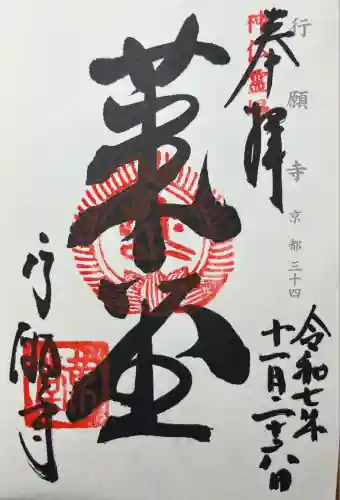 行願寺 京都 三十四
神仏霊場
奉拝
令和七年
十一月二十八日
革堂
行願寺